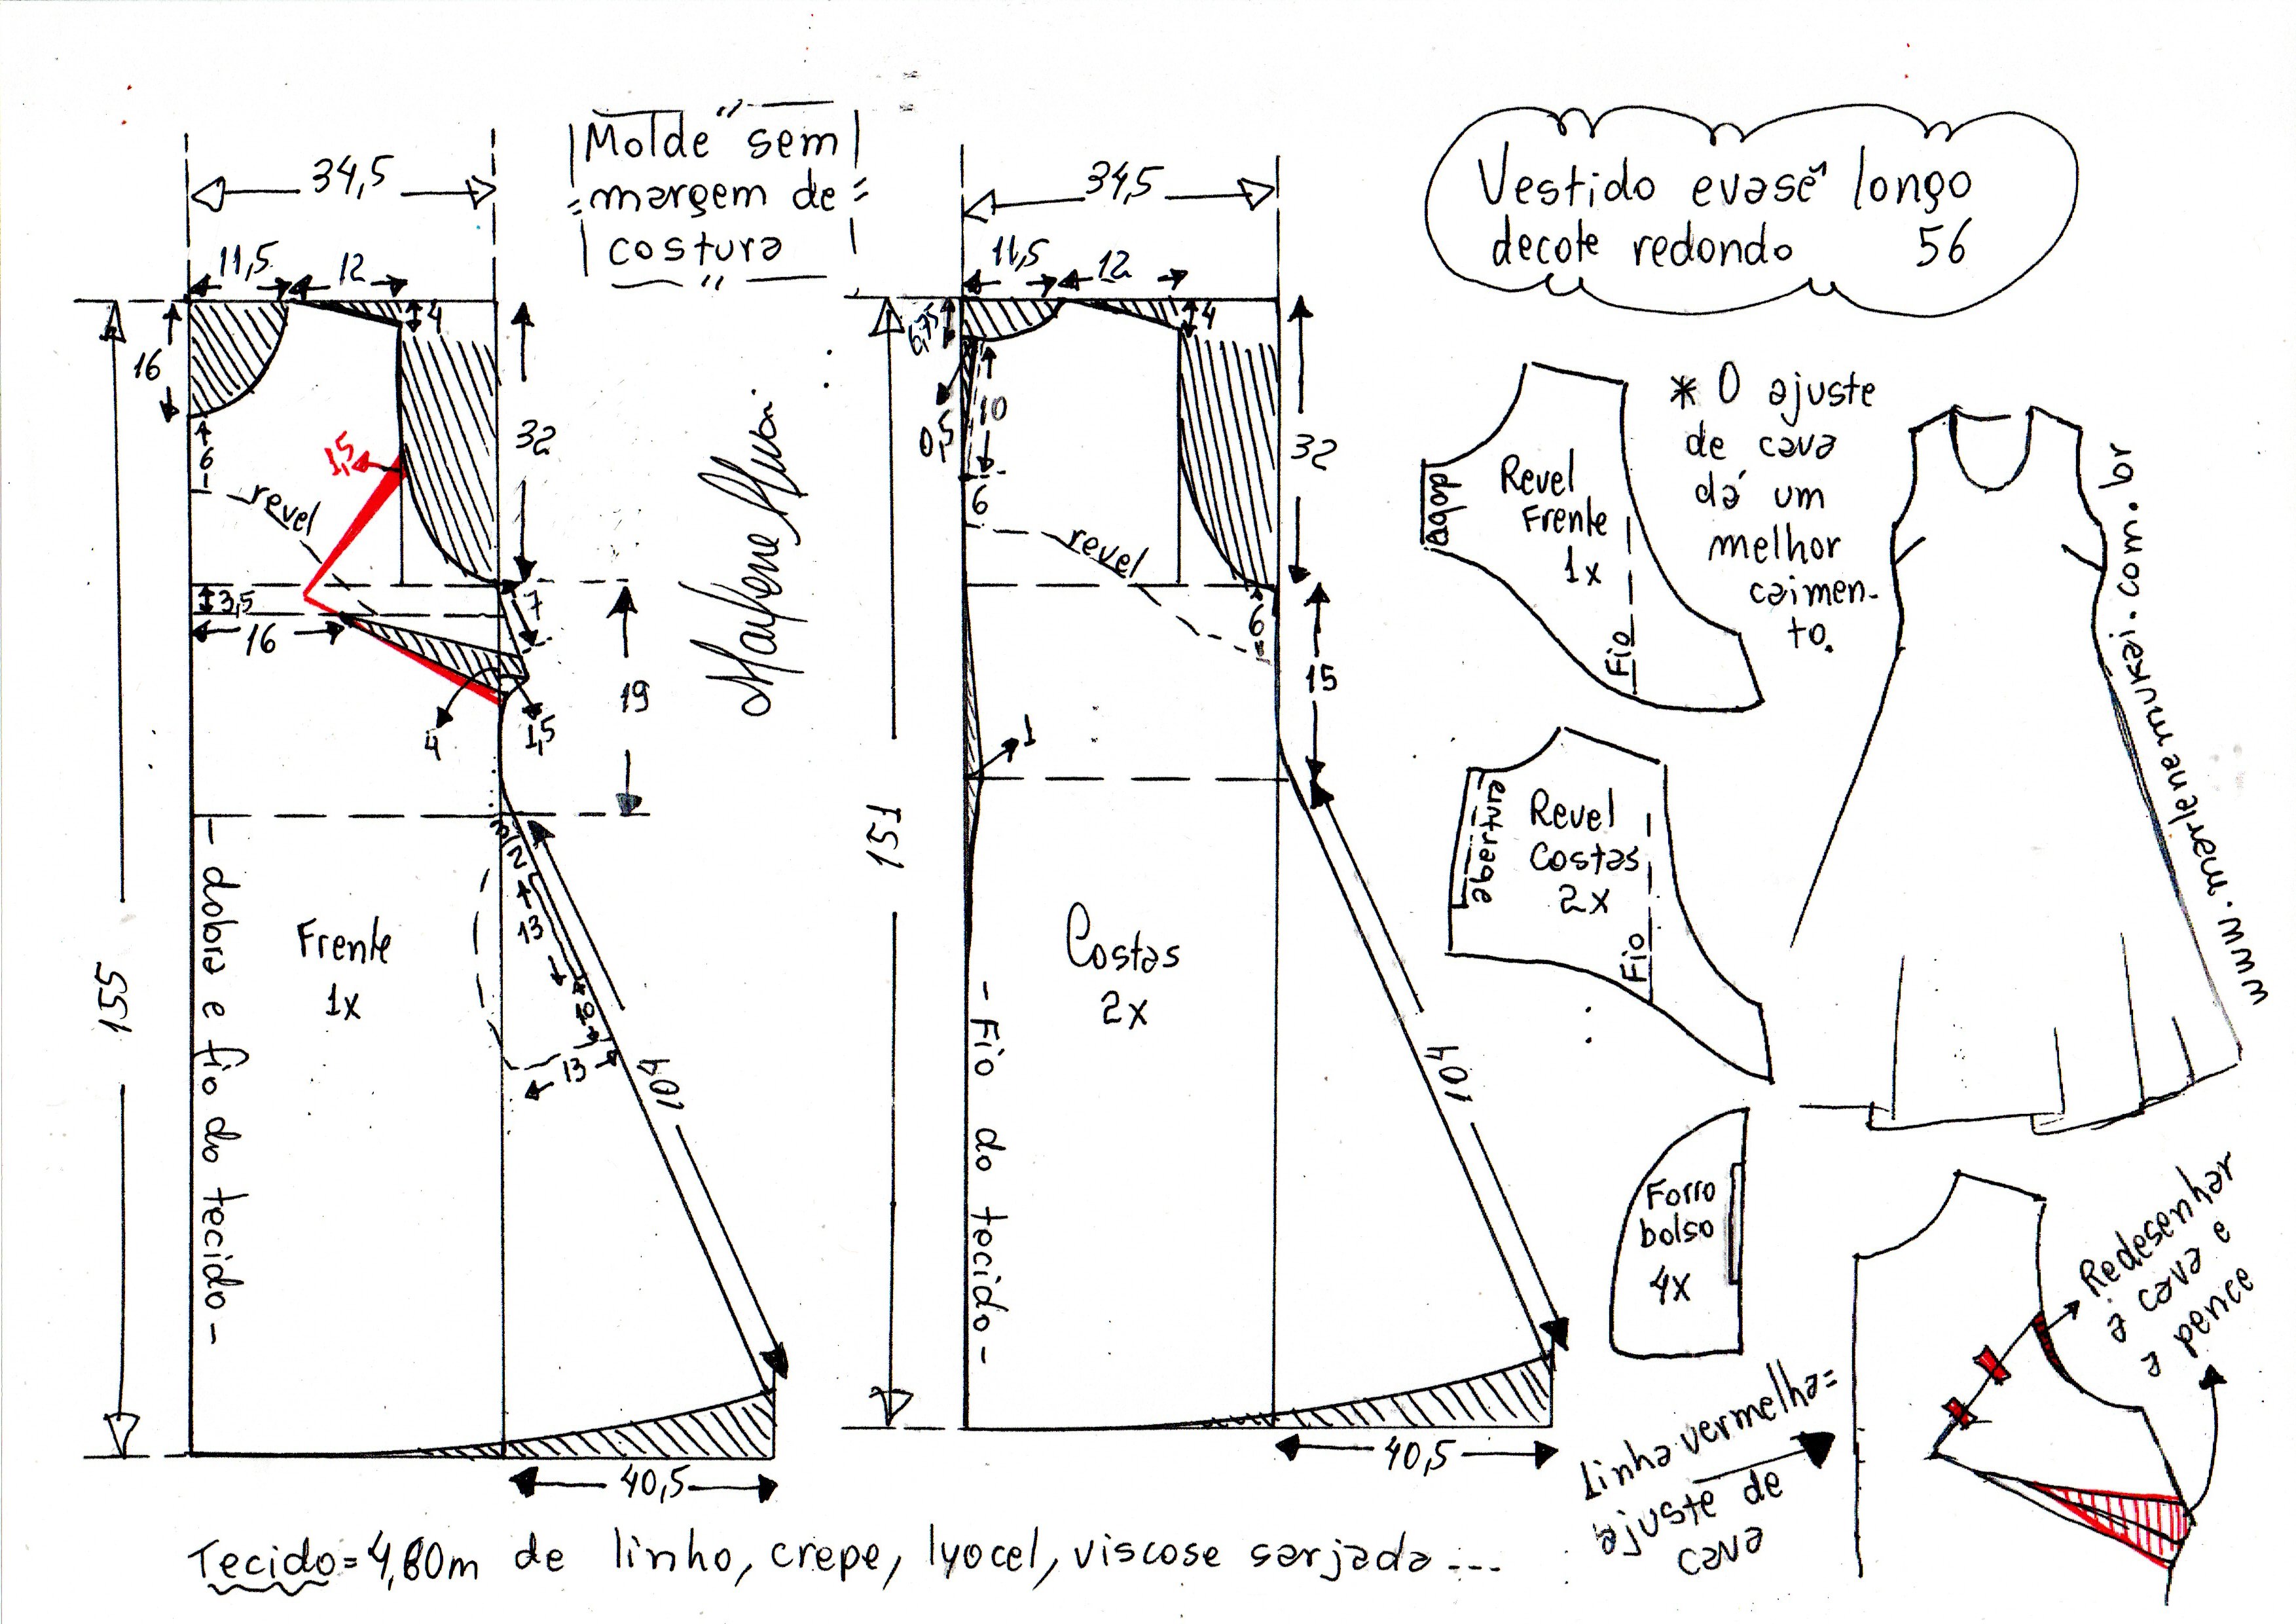 Molde sem
margem de
costura
Vestido evasê longo
decote redondo 56
34,5
11,5
12
4
16
6
1,5
revel
32
3,5
16
7
4
1,5
19
155
3
12
13
10
13
104
- dobra e fio do tecido -
Frente
1x
40,5
34,5
11,5
12
4
6,75
0,5
10
6
revel
32
6
15
1
151
Costas
2x
- Fio do tecido -
104
40,5
Revel
Frente
1x
dobra
Fio
* O ajuste
de cava
dá um
melhor
caimen-
to.
Revel
Costas
2x
abertura
Fio
www.marlenemukai.com.br
Forro
bolso
4x
Linha vermelha=
ajuste de
cava
Redesenhar
a cava e
a pence
Tecido = 4,80m de linho, crepe, lyocel, viscose sarjada...